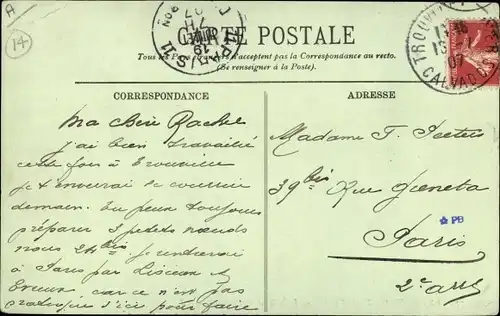 A
14
CARTE POSTALE
Tous les Pays n'acceptent pas la Correspondance au recto.
(Se renseigner à la Poste).
CORRESPONDANCE
ADRESSE
TROUVILLE
CALVADOS
07
PARIS
19
Ma chère Rachel
j'ai bien travaillé
cette fois à Trouville
je t'enverrai le courrier
demain. Tu peux toujours
préparer 3 petits nœuds
nous 24 bis je rentrerai
à Paris par Lisieux et
Evreux car ce n'est pas
pratique d'ici pour faire
Madame F. Peeters
39 bis Rue Greneta
PB
Paris
2e arr